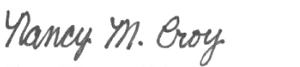 Nancy M. Croy